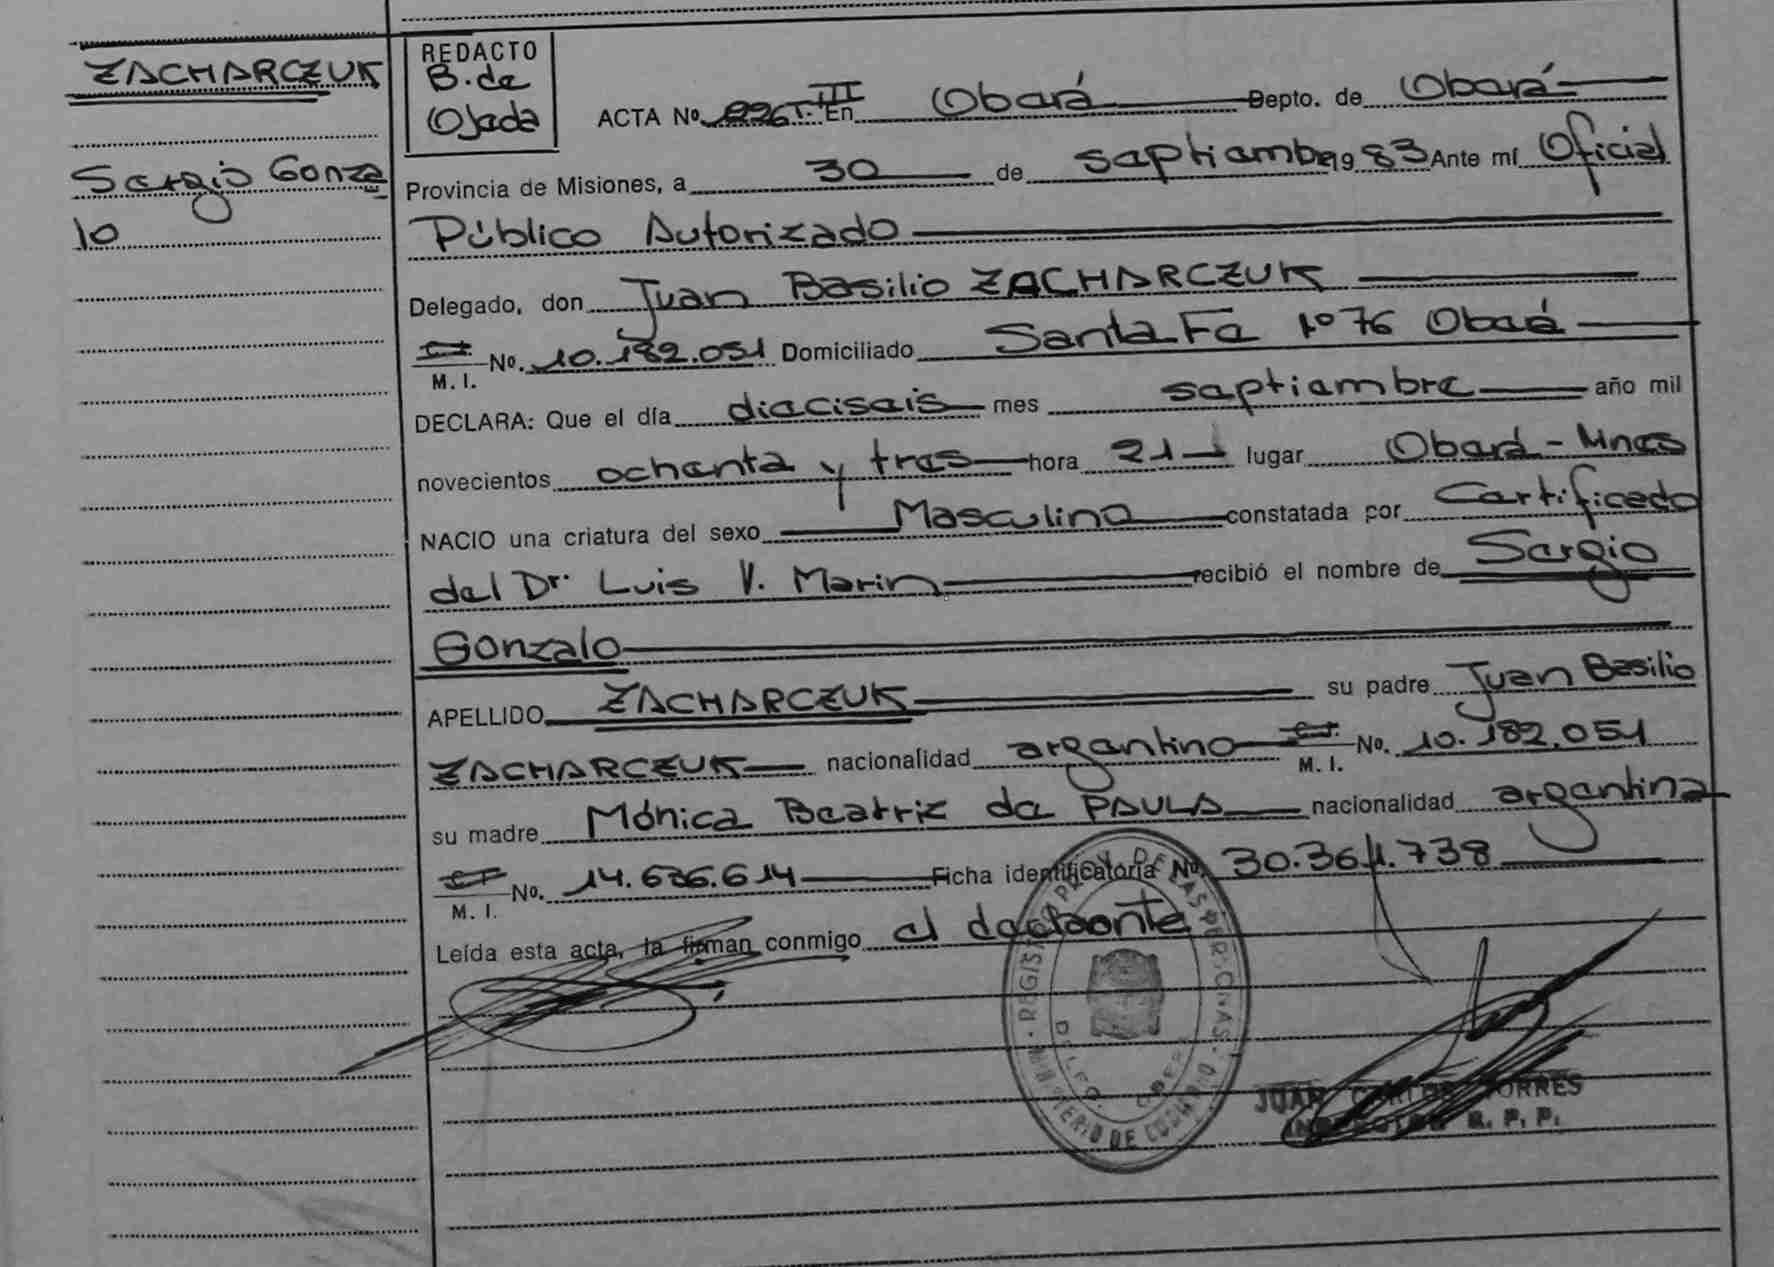 ZACHARCZUK
Sergio Gonza
lo
REDACTO
B. de
Ojeda
ACTA Nº 226 T. III En Oberá Depto. de Oberá
Provincia de Misiones, a 30 de septiembre 19 83 Ante mí Oficial
Público Autorizado
Delegado, don Juan Basilio ZACHARCZUK
M. I. No. 10.182.051 Domiciliado Santa Fe 1076 Oberá
DECLARA: Que el día dieciseis mes septiembre año mil
novecientos ochenta y tres hora 21 lugar Oberá - Mnes
NACIO una criatura del sexo Masculino constatada por Certificado
del Dr. Luis V. Marin recibió el nombre de Sergio
Gonzalo
APELLIDO ZACHARCZUK su padre Juan Basilio
ZACHARCZUK nacionalidad argentino M. I. No. 10.182.051
su madre Mónica Beatriz de PAULA nacionalidad argentina
M. I. No. 14.636.614 Ficha identificatoria No. 30.361.738
Leída esta acta, la firman conmigo el declarante
JUAN CARLOS TORRES
INSPECTOR R. P. P.